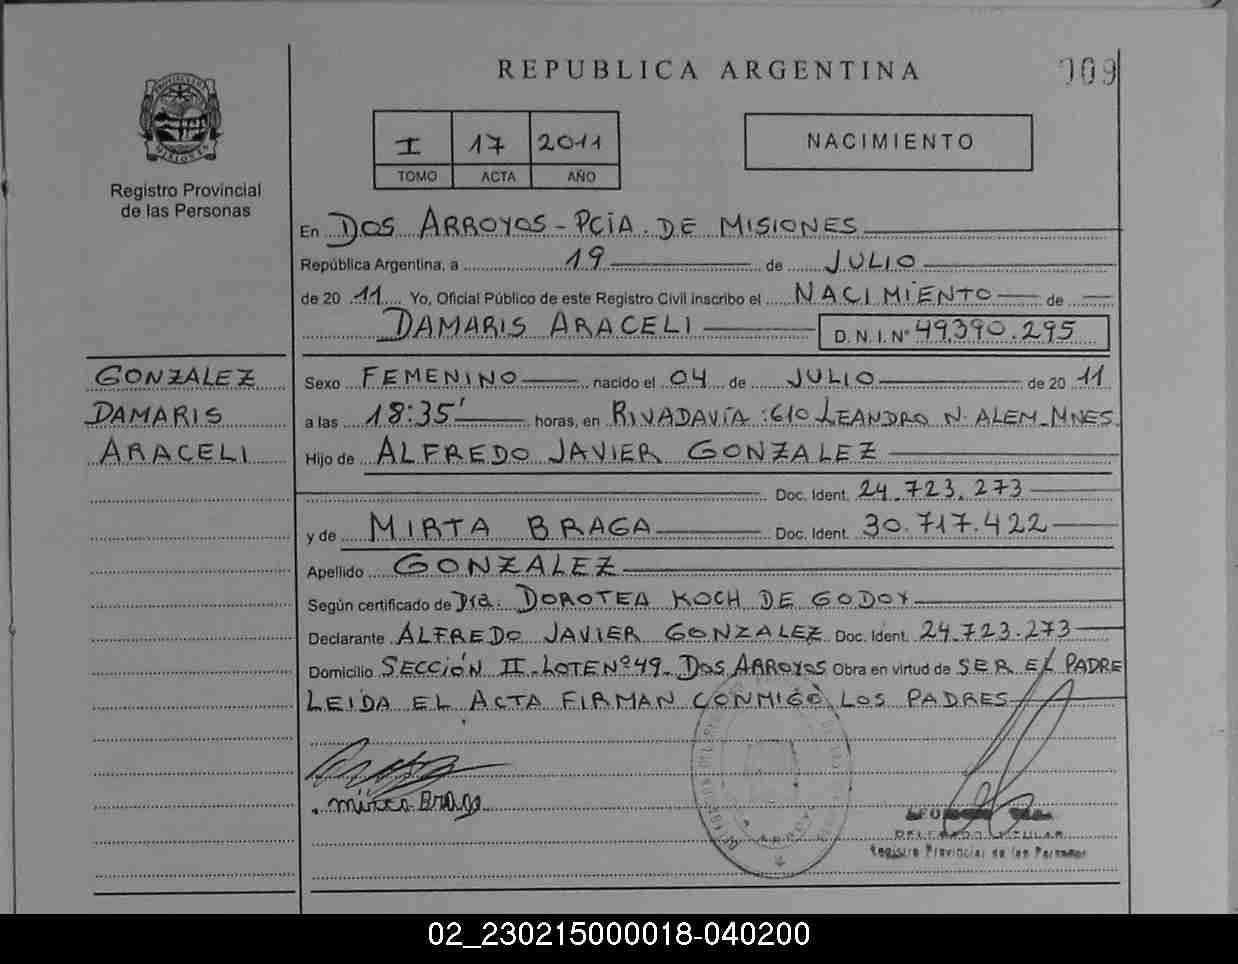 REPUBLICA ARGENTINA
009
PROVINCIA DE MISIONES
Registro Provincial
de las Personas
I 17 2011
TOMO ACTA AÑO
NACIMIENTO
En DOS ARROYOS - PCIA. DE MISIONES
República Argentina, a 19 de JULIO
de 20 11 Yo, Oficial Público de este Registro Civil inscribo el NACIMIENTO de
DAMARIS ARACELI D.N.I. Nº 49.390.295
GONZALEZ
DAMARIS
ARACELI
Sexo FEMENINO nacido el 04 de JULIO de 20 11
a las 18:35' horas, en RIVADAVIA :610 LEANDRO N. ALEM - MNES.
Hijo de ALFREDO JAVIER GONZALEZ
Doc. Ident. 24.723.273
y de MIRTA BRAGA Doc. Ident. 30.717.422
Apellido GONZALEZ
Según certificado de Dra. DOROTEA KOCH DE GODOY
Declarante ALFREDO JAVIER GONZALEZ Doc. Ident. 24.723.273
Domicilio SECCIÓN II - LOTE Nº 49 - DOS ARROYOS Obra en virtud de SER EL PADRE
LEIDA EL ACTA FIRMAN CONMIGO LOS PADRES
mirta Braga
DELEGADO TITULAR
Registro Provincial de las Personas
02_230215000018-040200